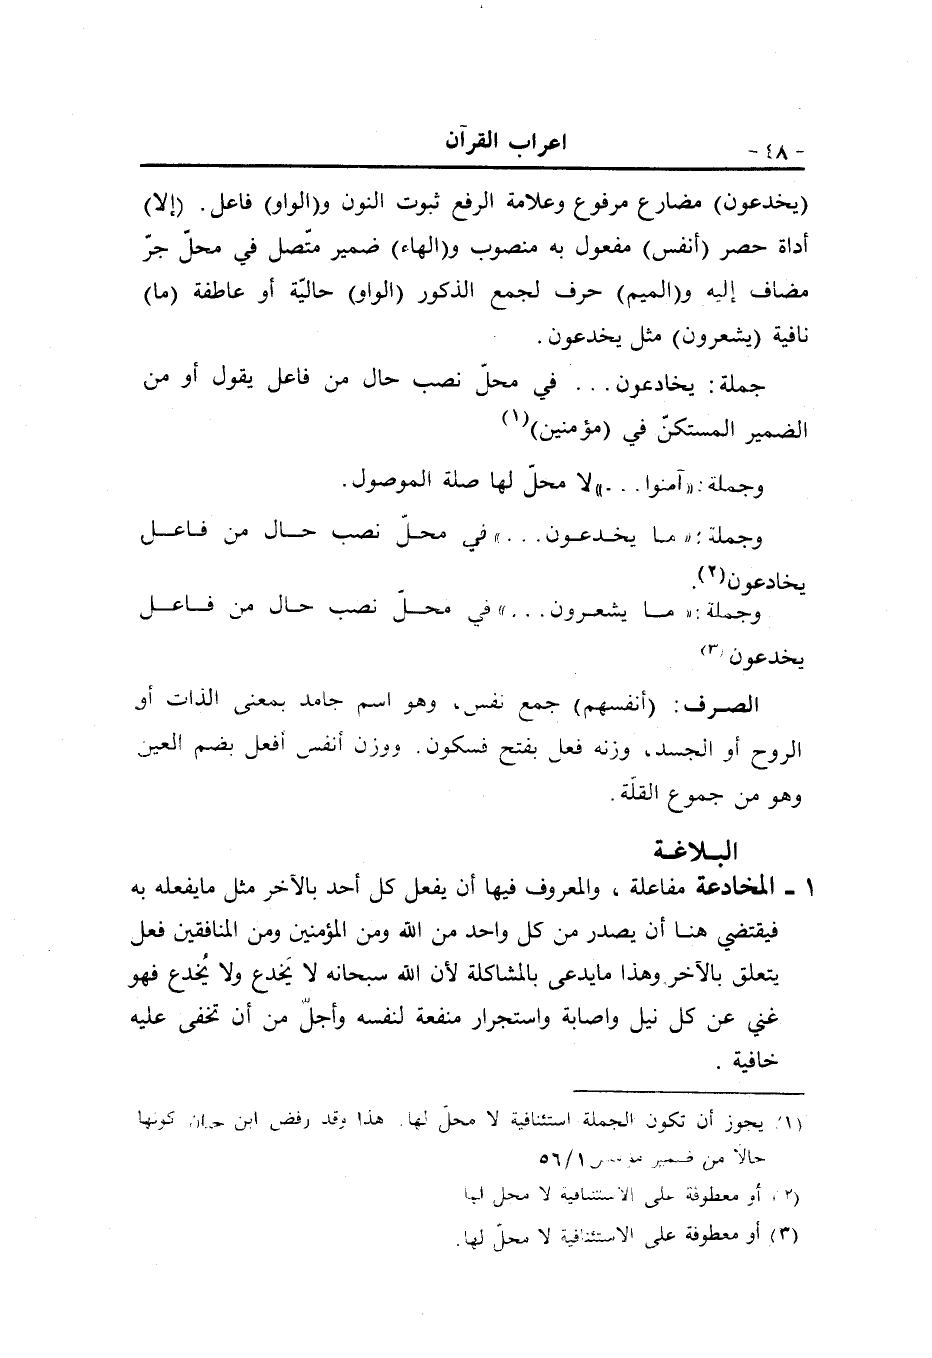 - ٤٨ -
اعراب القرآن
(يخدعون) مضارع مرفوع وعلامة الرفع ثبوت النون و(الواو) فاعل. (إلا)
أداة حصر (أنفس) مفعول به منصوب و(الهاء) ضمير متّصل في محلّ جرّ
مضاف إليه و(الميم) حرف لجمع الذكور (الواو) حاليّة أو عاطفة (ما)
نافية (يشعرون) مثل يخدعون.
جملة: يخادعون... في محلّ نصب حال من فاعل يقول أو من
الضمير المستكنّ في (مؤمنين)(١)
وجملة: «آمنوا...» لا محلّ لها صلة الموصول.
وجملة: « ما يخدعون...» في محلّ نصب حال من فاعل
يخادعون(٢).
وجملة: « ما يشعرون...» في محلّ نصب حال من فاعل
يخدعون(٣)
الصرف: (أنفسهم) جمع نفس، وهو اسم جامد بمعنى الذات أو
الروح أو الجسد، وزنه فعل بفتح فسكون. ووزن أنفس أفعل بضم العين
وهو من جموع القلّة.
البلاغة
١ - المخادعة مفاعلة ، والمعروف فيها أن يفعل كل أحد بالآخر مثل مايفعله به
فيقتضي هنا أن يصدر من كل واحد من الله ومن المؤمنين ومن المنافقين فعل
يتعلق بالآخر. وهذا مايدعى بالمشاكلة لأن الله سبحانه لا يَخدع ولا يُخدع فهو
غني عن كل نيل واصابة واستجرار منفعة لنفسه وأجلّ من أن تخفى عليه
خافية .
(١) يجوز أن تكون الجملة استئنافية لا محلّ لها. هذا وقد رفض ابن حيان كونها
حالاً من ضمير ٥٦/١
(٢) أو معطوفة على الاستئنافية لا محل لها
(٣) أو معطوفة على الاستئنافية لا محلّ لها.